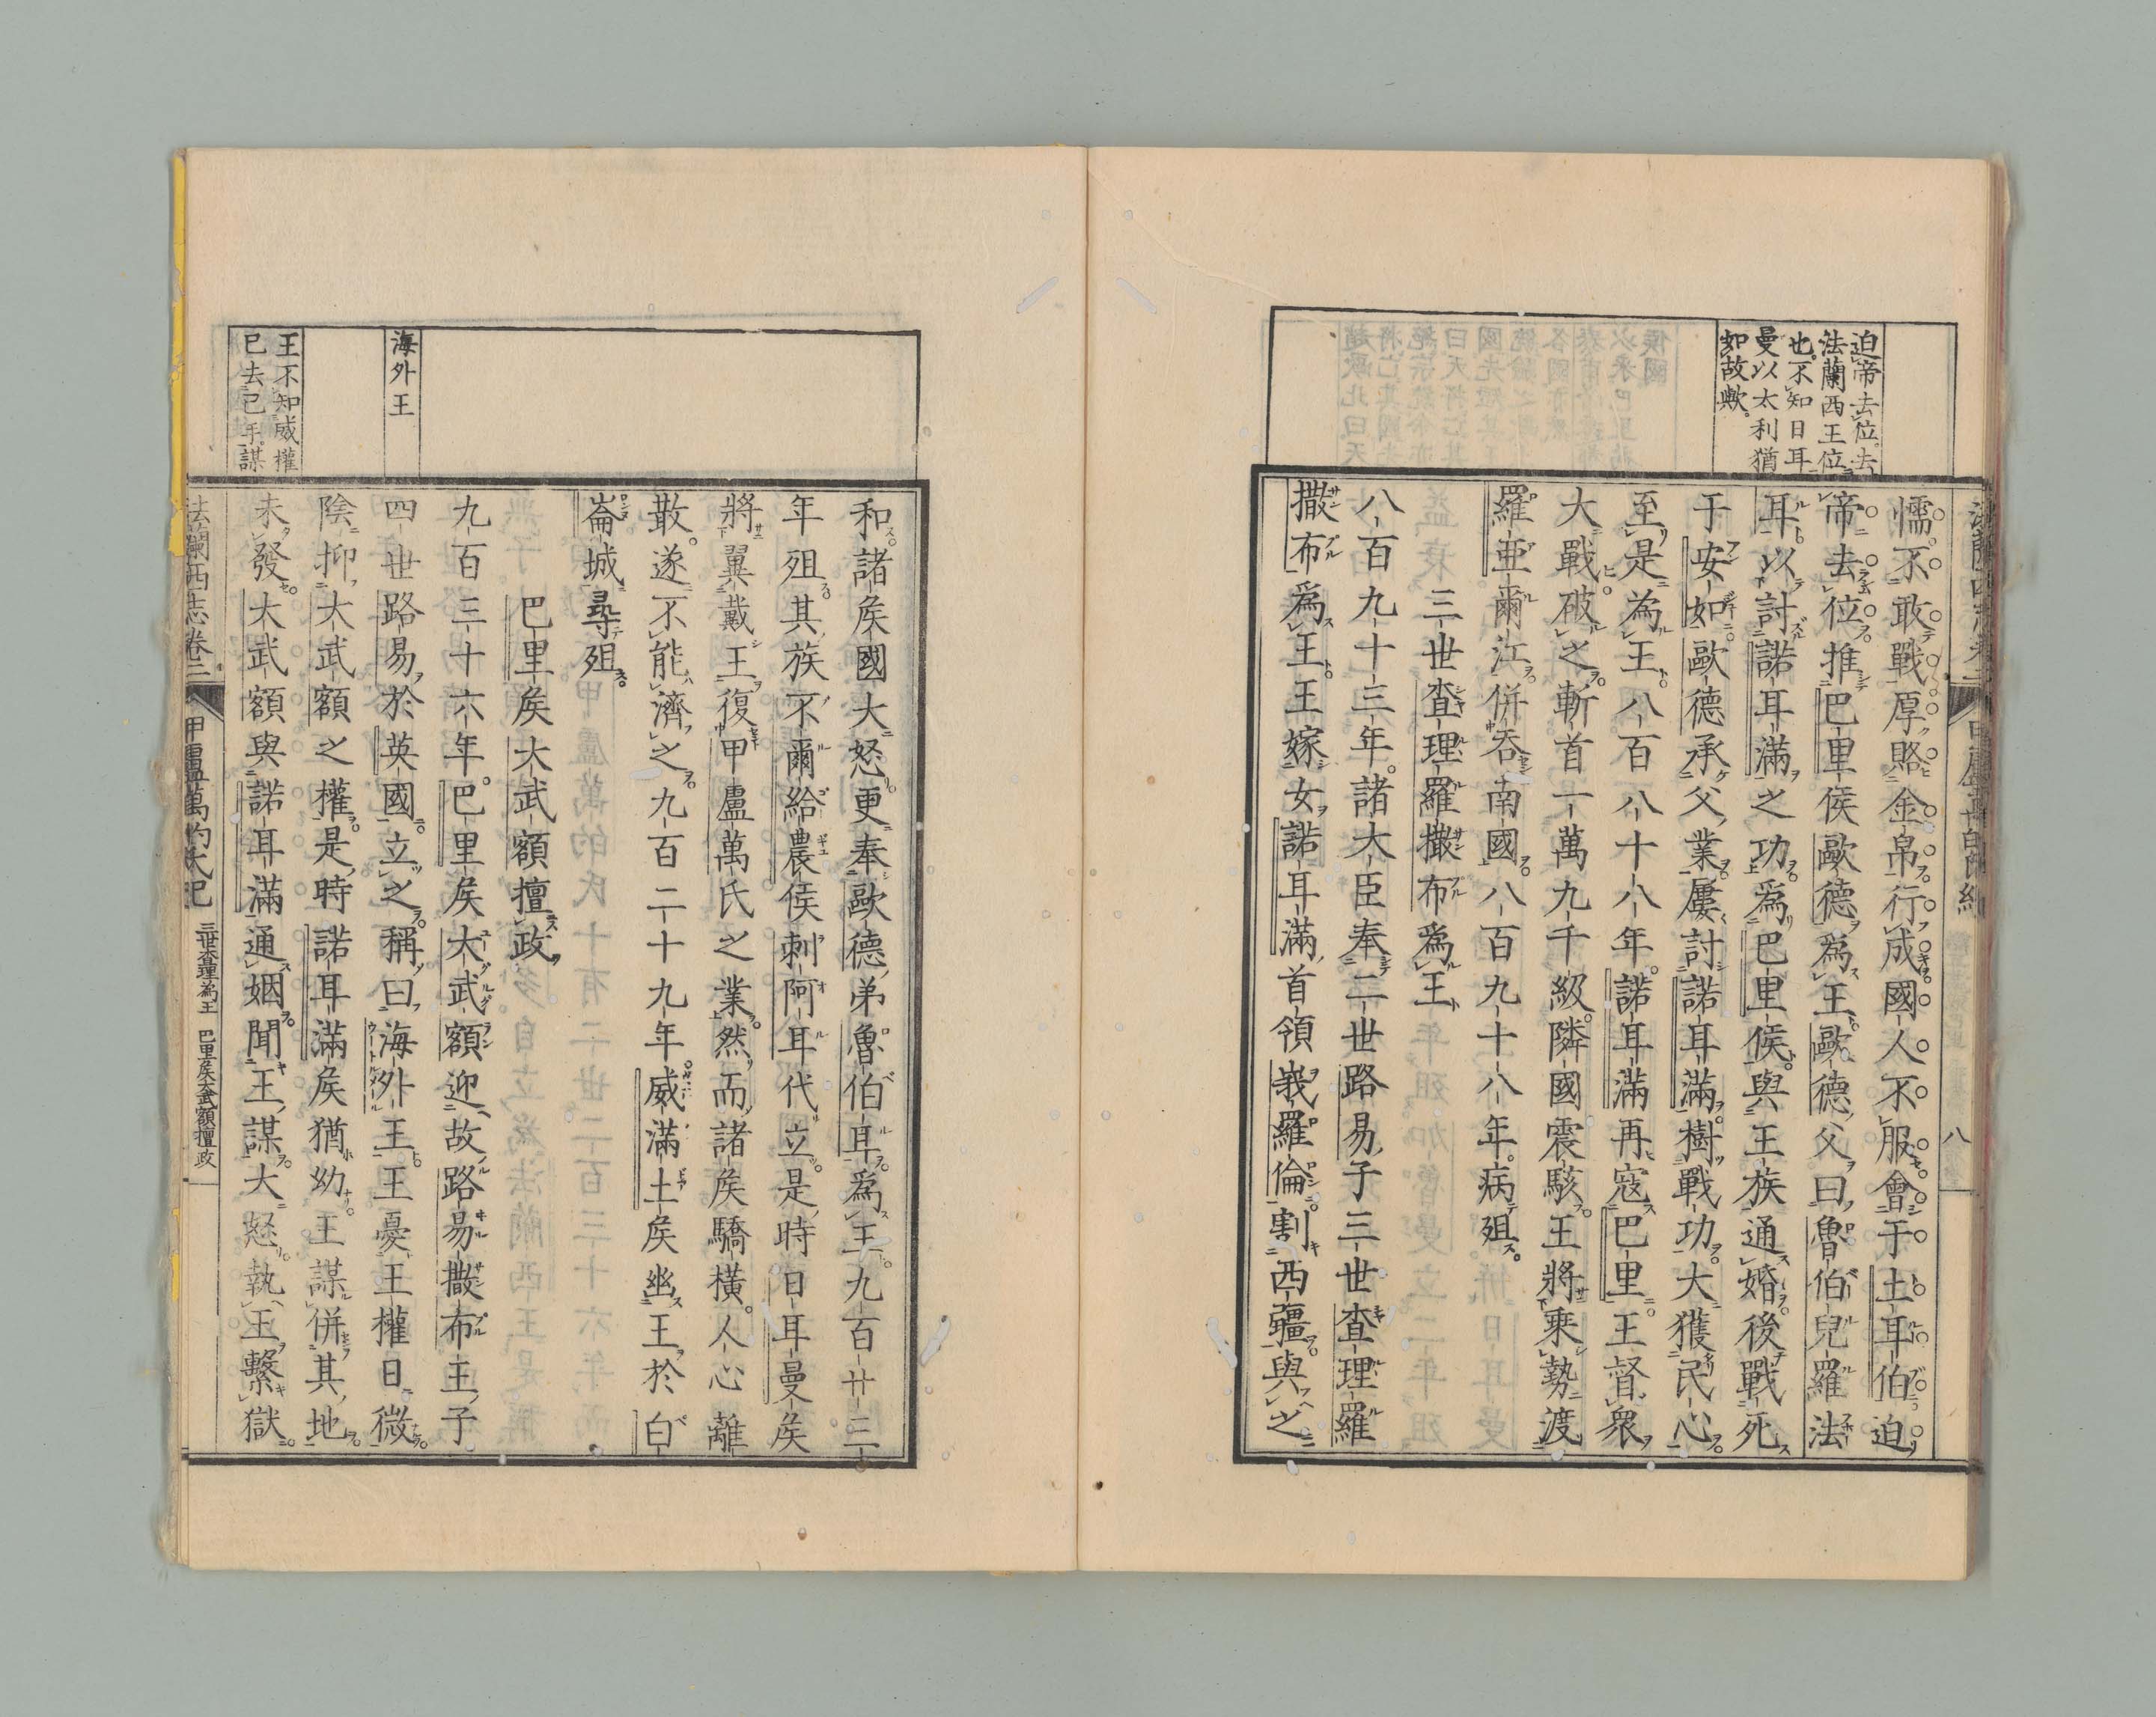 迫帝去位去
法蘭西王位
也不知日耳
曼以太利猶
如故歟
懦不敢戰厚賂金帛行成國人不服會于土耳伯迫
帝去位推巴里侯歐德爲王歐德父曰魯伯兒羅法
耳以討諾耳滿之功爲巴里侯與王族通婚後戰死
于安如歐德承父業屢討諾耳滿樹戰功大獲民心
至是為王八百八十八年諾耳滿再寇巴里王督衆
大戰破之斬首一萬九千級隣國震駭王將乘勢渡
羅亜爾江併吞南國八百九十八年病殂
三世査理羅撒布爲王
八百九十三年諸大臣奉二世路易子三世査理羅
撒布爲王王嫁女諾耳滿首領峩羅倫割西疆與之
八
海外王
王不知威權
已去已手謀
和諸矦國大怒更奉歐德弟魯伯耳爲王九百廿三
年殂其族不爾給農侯刺阿耳代立是時日耳曼矦
將翼戴王復甲盧萬氏之業然而諸矦驕橫人心離
散遂不能濟之九百二十九年威滿土矦幽王於白
崙城尋殂
巴里矦大武額擅政
九百三十六年巴里矦大武額迎故路易撒布王子
四世路易於英國立之稱曰海外王王憂王權日微
陰抑大武額之權是時諾耳滿矦猶幼王謀併其地
未發大武額與諾耳滿通姻聞王謀大怒執王繫獄
法蘭西志卷二 甲盧萬的太紀 三世査理為王 巴里矦大武額擅政